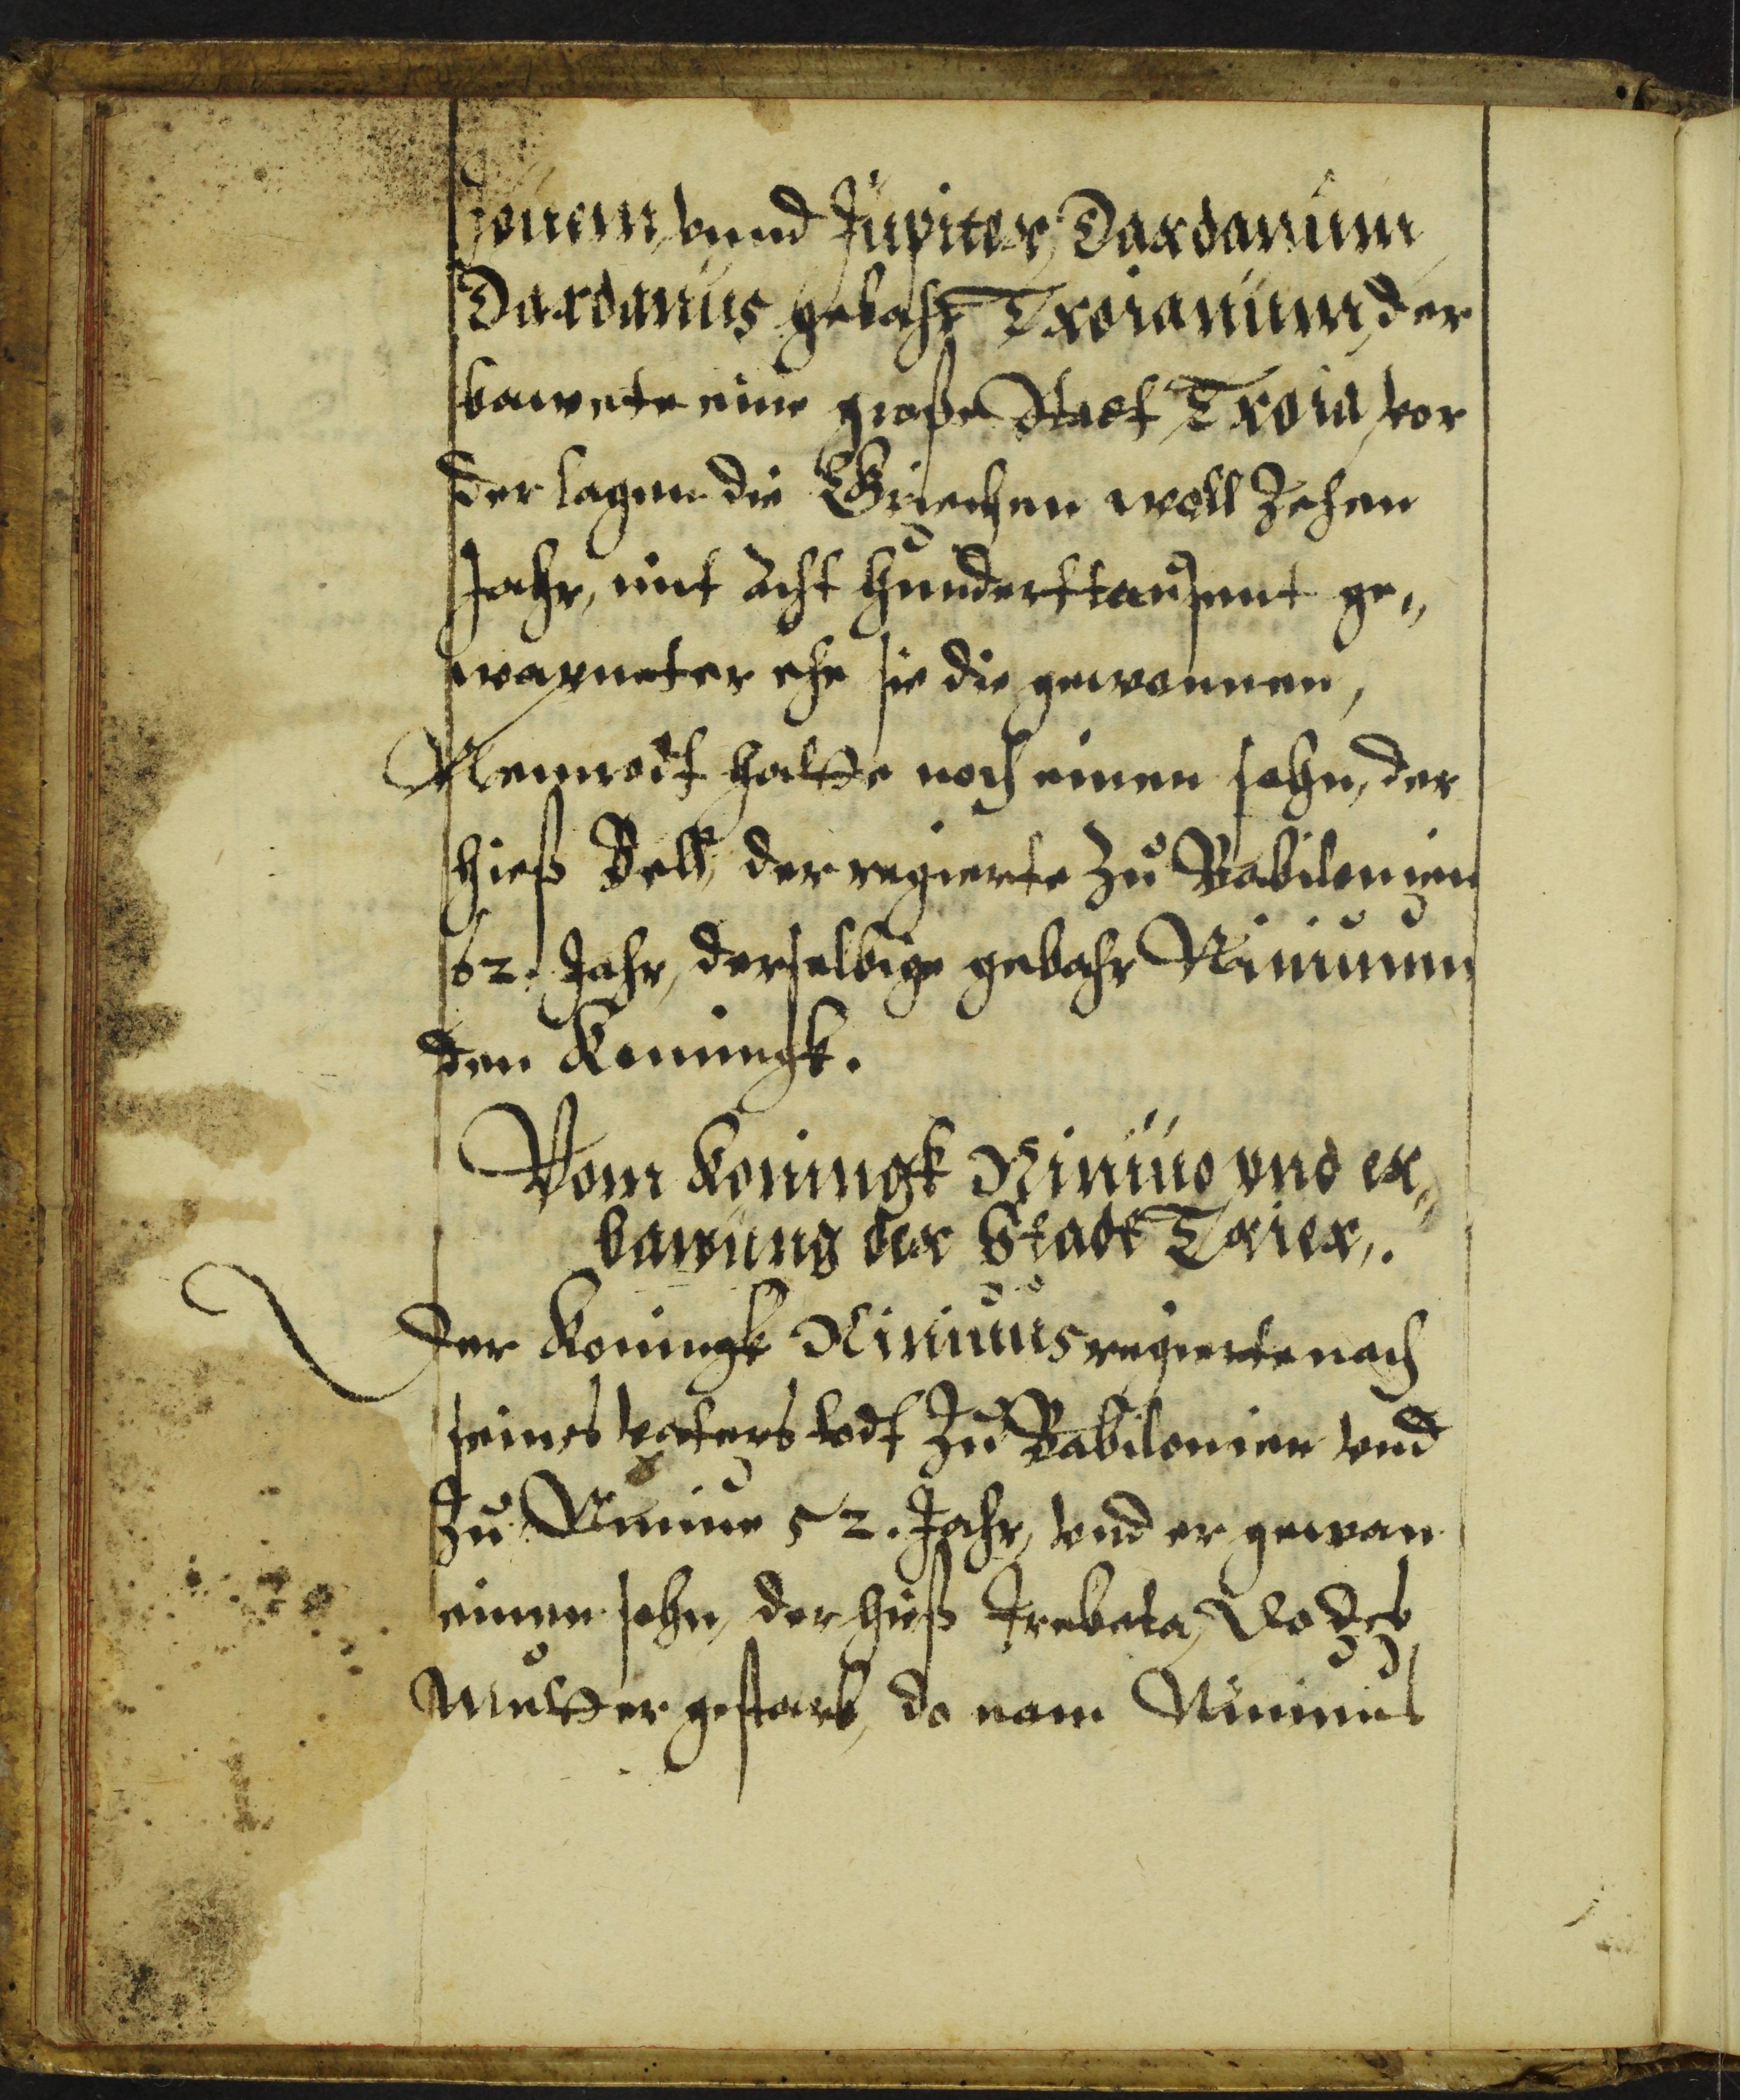 Jouem, vnnd Jupiter, Dardanum
Dardanus gebahr Troianum, der
bawete eine große Stadt Troia, vor
der lagen die Griechen woll Zehen
Jahr, mit acht hunderttausent ge„
wapneter ehe sie die gewonnen,
Nemrodt hatte noch einen sohn, der
hieß Bell, der regierte Zu Babilonien
62. Jahr, derselbige gebahr Ninuum
den Koningk.
Vom Koningk Ninuo vnd er„
bawung der Stadt Trier,.
Der Koningk Ninuus regierte nach
seines vaters todt Zu Babilonien vnd
Zu Niniue 52. Jahr, vnd er gewan
einen sohn, der hieß Trebeta, Do des
Mutter gestarb, do nam Ninuus